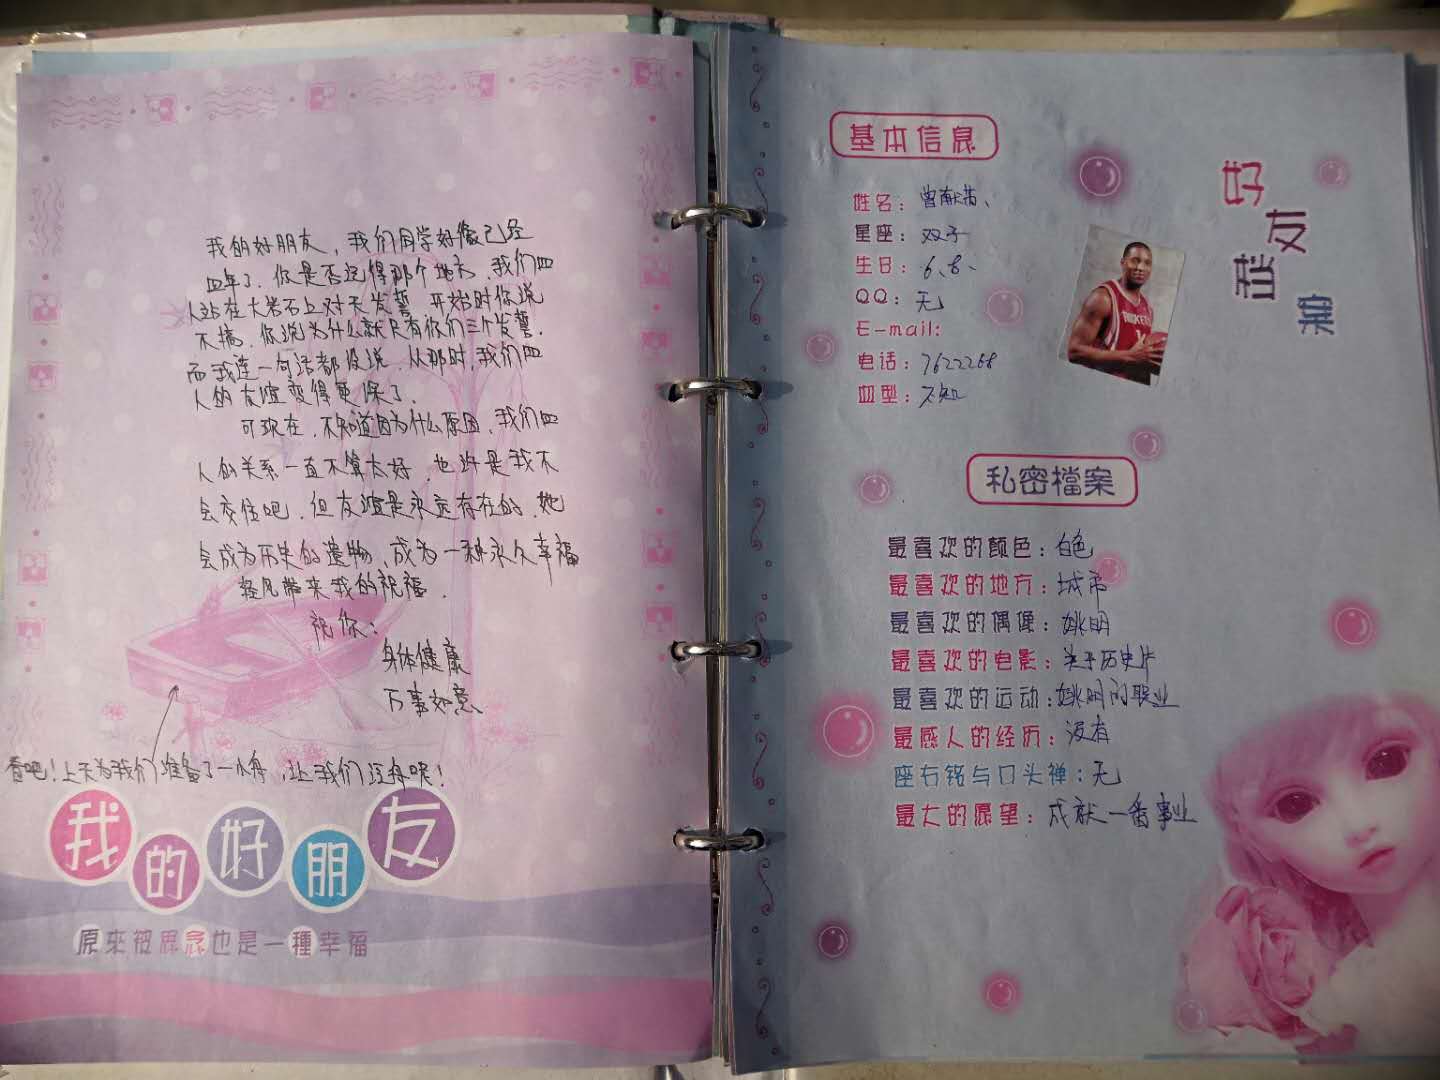 我的好朋友，我们同学好像已经
四年了，你是否记得那个地方，我们四
人站在大岩石上对天发誓，开始时你说
不搞，你说为什么就只有你们三个发誓.
而我连一句话都没说，从那时，我们四
人的友谊变得更深了.
可现在，不知道因为什么原因，我们四
人的关系一直不算太好，也许是我不
会交往吧，但友谊是永远存在的，她
会成为历史的遗物，成为一种永久幸福
轻风带来我的祝福.
祝你：
身体健康
万事如意、
看吧！上天为我们准备了一小舟，让我们逃呢！
我的好朋友
原來被思念也是一種幸福
基本信息
姓名：曾献
星座：双子
生日：6、8、
QQ：无
E-mail:
电话：7622268
血型：不知
好友档案
ROCKETS
1
私密檔案
最喜欢的颜色：白色
最喜欢的地方：城市
最喜欢的偶像：姚明
最喜欢的电影：关于历史片
最喜欢的运动：姚明的职业
最感人的经历：没有
座右铭与口头禅：无
最大的愿望：成就一番事业